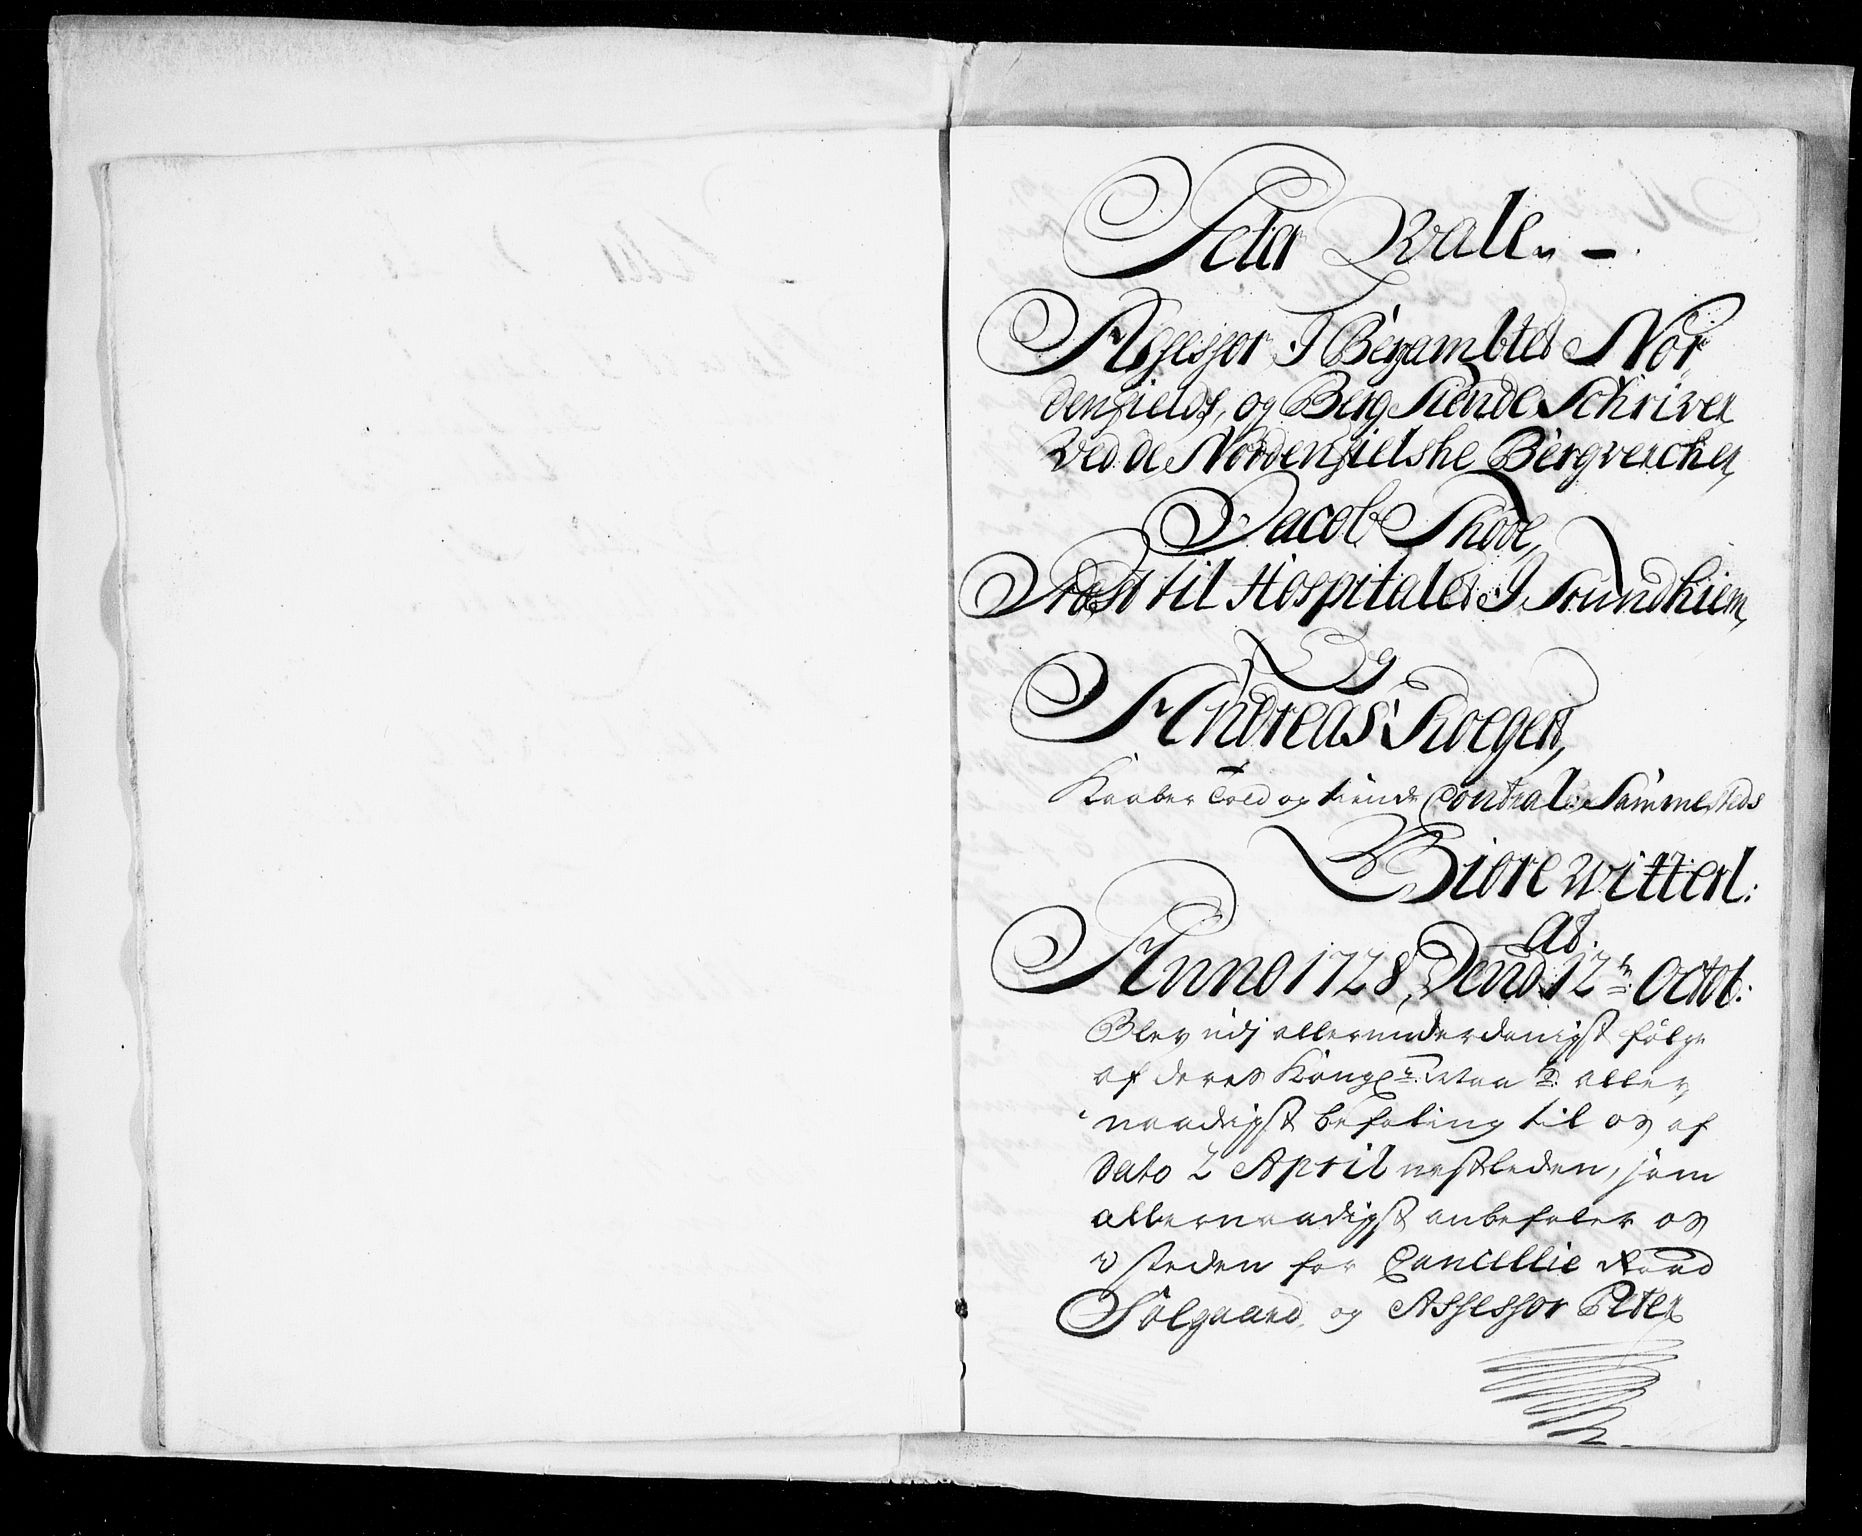 Peter Dvale, –
Assessor I Bergambtet Nor
denfields, og Berg Tiende Schriver
Ved de Nordenfielske Bergvercher,
Jacob
Præst til Hospitalet I Trundhiem,
Og
Andreas
Kaaber Told og tiende Control: Sammesteds
Giøre witterl:
At.
Anno 1728, Dend 12te Octob:
Blev udj allerunderdanigst følge
af deres Kongl: Maÿ: aller
naadigst befaling til os af
Dato 2 April nestleden, som
allernaadigst anbefaler os
i steden for Cancellie Raad
Sølgaard, og Assessor Peter